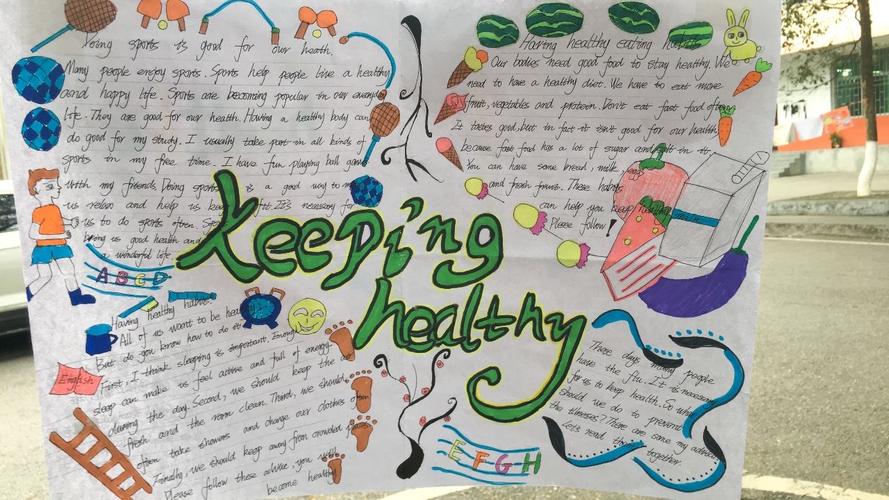 Doing sports is good for our heath.
Many people enjoy sports. Sports help people live a healthy
and happy life. Sports are becoming popular in our everyday
life. They are good for our health. Having a healthy body can
do good for my study. I usually take part in all kinds of
sports in my free time. I have fun playing ball games
With my friends. Doing sports is a good way to
us relax and help us keep fit. It's necessary for
us to do sports often. Sports
bring us good health and
a wonderful life.
A B C D
Keeping
healthy
Having healthy eating habits
Our bodies need good food to stay healthy. We
need to have a healthy diet. We have to eat more
fruit, vegetables and protein. Don't eat fast food often
It tastes good, but in fact it isn't good for our health
because fast food has a lot of sugar and salt in it.
You can have some bread, milk, eggs
and fresh fruit. These habits
can help you keep healthy
Please follow!
Having healthy habit.
All of us want to be
But do you know how to do it
First, I think sleeping is important. Enough
sleep can make us feel active and full of energy
during the day. Second, we should keep the
fresh and the room clean. Third, we should
often take showers and change our clothes often
Finally we should keep away from crowded
Please follow these advise. you will
become healthy
English
E F G H
These days many people
have the flu. It is necessary
for us to keep health. So what
should we do to prevent
the illnesses? There are some my advice
Let's read them together